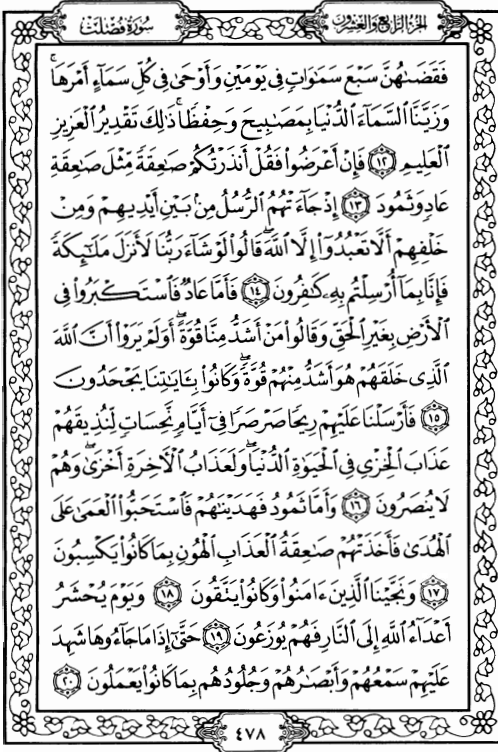 سُورَةُ فُصِّلَتْ
الجُزْءُ الرَّابِعُ وَالعِشْرُونَ
فَقَضَىٰهُنَّ سَبْعَ سَمَٰوَاتٍ فِي يَوْمَيْنِ وَأَوْحَىٰ فِي كُلِّ سَمَآءٍ أَمْرَهَاۚ
وَزَيَّنَّا ٱلسَّمَآءَ ٱلدُّنْيَا بِمَصَٰبِيحَ وَحِفْظٗاۚ ذَٰلِكَ تَقْدِيرُ ٱلْعَزِيزِ
ٱلْعَلِيمِ ١٢ فَإِنْ أَعْرَضُوا۟ فَقُلْ أَنذَرْتُكُمْ صَٰعِقَةٗ مِّثْلَ صَٰعِقَةِ
عَادٖ وَثَمُودَ ١٣ إِذْ جَآءَتْهُمُ ٱلرُّسُلُ مِنۢ بَيْنِ أَيْدِيهِمْ وَمِنْ
خَلْفِهِمْ أَلَّا تَعْبُدُوٓا۟ إِلَّا ٱللَّهَۖ قَالُوا۟ لَوْ شَآءَ رَبُّنَا لَأَنزَلَ مَلَٰٓئِكَةٗ
فَإِنَّا بِمَآ أُرْسِلْتُم بِهِۦ كَٰفِرُونَ ١٤ فَأَمَّا عَادٞ فَٱسْتَكْبَرُوا۟ فِي
ٱلْأَرْضِ بِغَيْرِ ٱلْحَقِّ وَقَالُوا۟ مَنْ أَشَدُّ مِنَّا قُوَّةًۖ أَوَلَمْ يَرَوْا۟ أَنَّ ٱللَّهَ
ٱلَّذِي خَلَقَهُمْ هُوَ أَشَدُّ مِنْهُمْ قُوَّةٗۖ وَكَانُوا۟ بِـَٔايَٰتِنَا يَجْحَدُونَ
١٥ فَأَرْسَلْنَا عَلَيْهِمْ رِيحٗا صَرْصَرٗا فِيٓ أَيَّامٖ نَّحِسَاتٖ لِّنُذِيقَهُمْ
عَذَابَ ٱلْخِزْيِ فِي ٱلْحَيَوٰةِ ٱلدُّنْيَاۖ وَلَعَذَابُ ٱلْأٓخِرَةِ أَخْزَىٰۖ وَهُمْ
لَا يُنصَرُونَ ١٦ وَأَمَّا ثَمُودُ فَهَدَيْنَٰهُمْ فَٱسْتَحَبُّوا۟ ٱلْعَمَىٰ عَلَى
ٱلْهُدَىٰ فَأَخَذَتْهُمْ صَٰعِقَةُ ٱلْعَذَابِ ٱلْهُونِ بِمَا كَانُوا۟ يَكْسِبُونَ
١٧ وَنَجَّيْنَا ٱلَّذِينَ ءَامَنُوا۟ وَكَانُوا۟ يَتَّقُونَ ١٨ وَيَوْمَ يُحْشَرُ
أَعْدَآءُ ٱللَّهِ إِلَى ٱلنَّارِ فَهُمْ يُوزَعُونَ ١٩ حَتَّىٰٓ إِذَا مَا جَآءُوهَا شَهِدَ
عَلَيْهِمْ سَمْعُهُمْ وَأَبْصَٰرُهُمْ وَجُلُودُهُم بِمَا كَانُوا۟ يَعْمَلُونَ ٢٠
٤٧٨